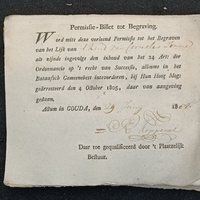 Permissie-Billet tot Begraving.
Word mits deze verleend Permissie tot het Begraven
van het Lijk van 't kind van Cornelis
als zijnde ingevolge den inhoud van het 24 Art: der
Ordonnantie op 't recht van Successie, alomme in het
Bataafsch Gemeenebest intevoeren, bij Hun Hoog Mog:
gearresteerd den 4 October 1805, daar van aangeving
gedaan.
Actum in GOUDA, den 29 180
Daar toe gequalificeerd door 't Plaatzelijk
Bestuur.